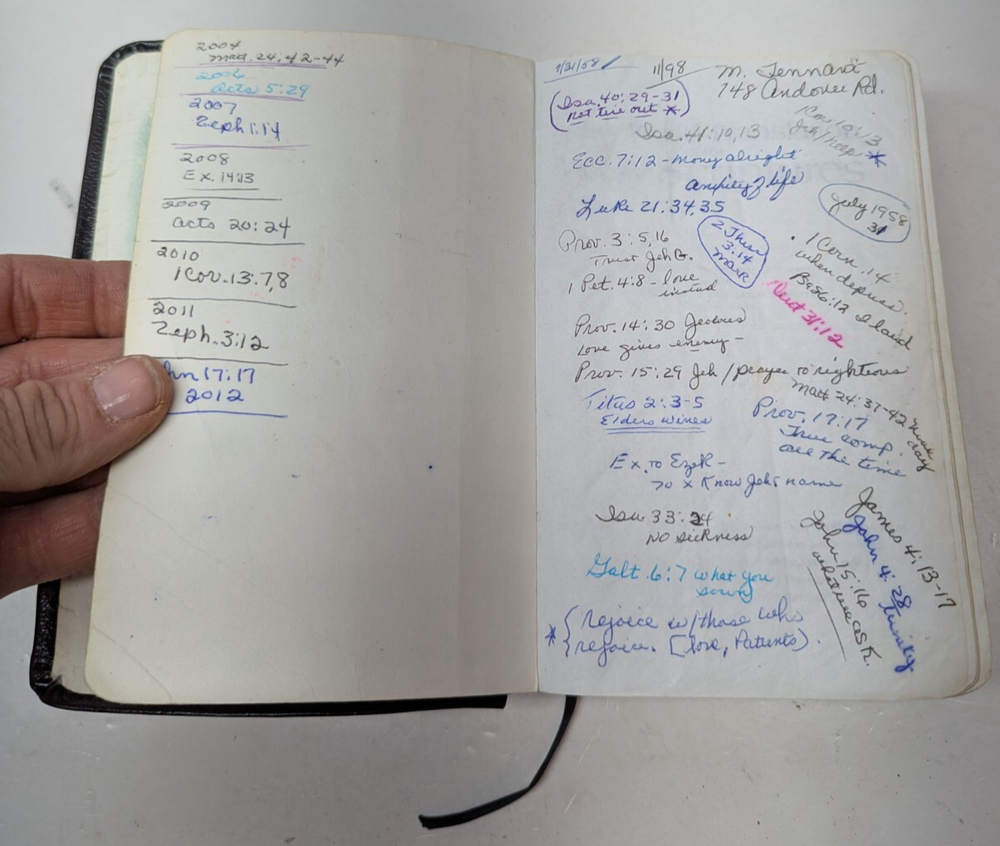 2004
Matt. 24:42-44
2006
Acts 5:29
2007
Zeph 1:14
2008
Ex. 14:13
2009
Acts 20:24
2010
1 Cor. 13:7,8
2011
Zeph. 3:12
hn 17:17
2012
7/31/58
11/98
M. Tennant
748 Andover Rd.
(Isa. 40:29-31
not tire out *)
Isa. 41:10,13
1 Cor. 10:13
Jeh/help *
Ecc. 7:12 - money alright
life
Luke 21:34,35
July 1958
31
Prov. 3:5,6
Trust Jeh
2 Thess
3:14
mark
1 Pet. 4:8 - love
instead
1 Corn. 14
when
12 I laid
Deut 31:12
Prov. 14:30 Jealous
Love gives enemy -
Prov. 15:29 Jeh/prayer to righteous
Matt 24:37-42
day
Titus 2:3-5
Elders wives
Prov. 17:17
True comp.
all the time
Ex. to Ezek -
70 x Know Jeh's name
Isa 33:24
NO sickness
James 4:13-17
John 4:28 Trinity
John 15:16
whatever ask.
Galt. 6:7 what you
sown
* { rejoice w/those who
rejoice. [love, Patients).